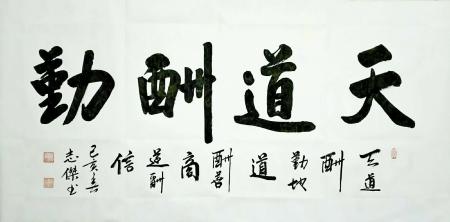 天道酬勤
天道酬勤地道酬善商道酬信
己亥
志傑书